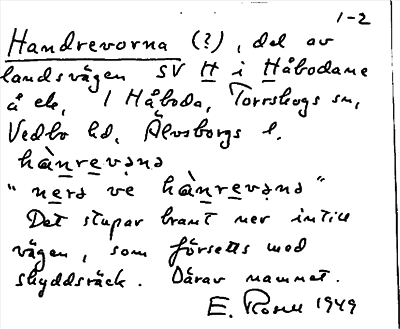 1-2
Handrevorna (?), del av
landsvägen SV H i Håbodane
å ek, 1 Håboda, Torrskogs sn,
Vedbo hd, Älvsborgs l.
hànrevəna
"nerə ve hànrevəna"
Det stupar brant ner intill
vägen, som försetts med
skyddsräck. Därav namnet.
E. Rosell 1949